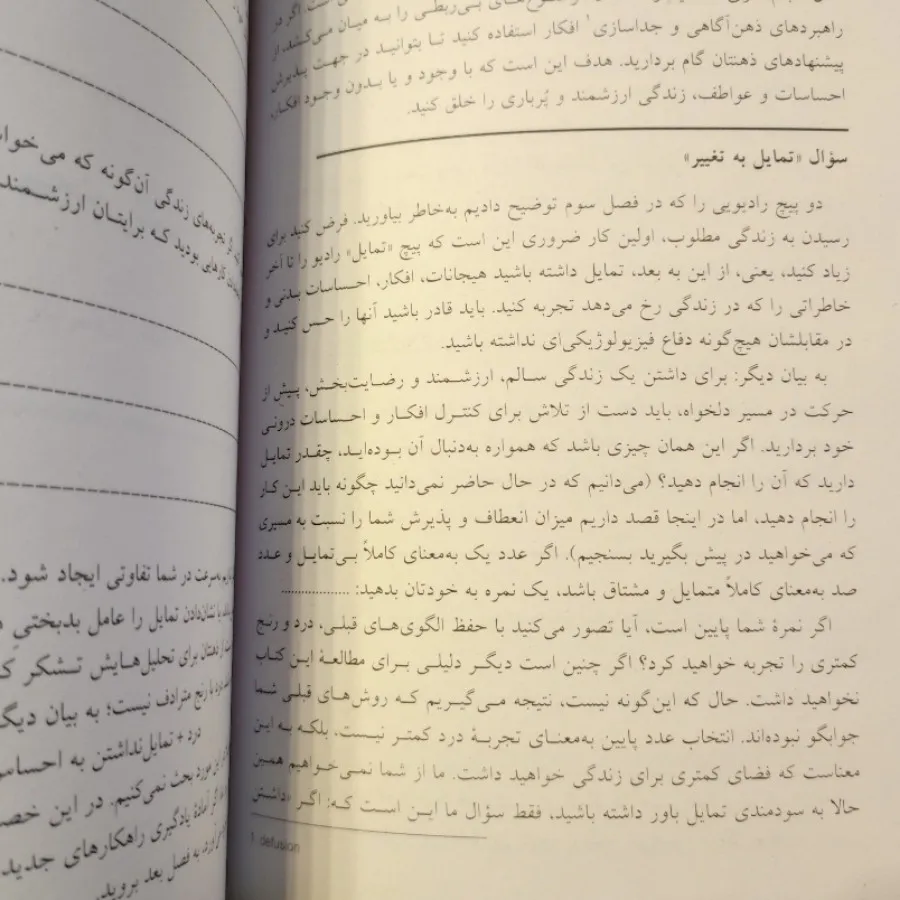 راهبردهای ذهن‌آگاهی و جداسازی۱ افکار استفاده کنید تا بتوانید در جهت پذیرش
پیشنهادهای ذهنتان گام بردارید. هدف این است که با وجود و یا بدون وجود افکار،
احساسات و عواطف، زندگی ارزشمند و پُرباری را خلق کنید.
سؤال «تمایل به تغییر»
دو پیچ رادیویی را که در فصل سوم توضیح دادیم به‌خاطر بیاورید. فرض کنید برای
رسیدن به زندگی مطلوب، اولین کار ضروری این است که پیچ «تمایل» رادیو را تا آخر
زیاد کنید، یعنی، از این به بعد، تمایل داشته باشید هیجانات، افکار، احساسات بدنی و
خاطراتی را که در زندگی رخ می‌دهد تجربه کنید. باید قادر باشید آنها را حس کنید و
در مقابلشان هیچ‌گونه دفاع فیزیولوژیکی‌ای نداشته باشید.
به بیان دیگر: برای داشتن یک زندگی سالم، ارزشمند و رضایت‌بخش، پیش از
حرکت در مسیر دلخواه، باید دست از تلاش برای کنترل افکار و احساسات درونی
خود بردارید. اگر این همان چیزی باشد که همواره به‌دنبال آن بوده‌اید، چقدر تمایل
دارید که آن را انجام دهید؟ (می‌دانیم که در حال حاضر نمی‌دانید چگونه باید این کار
را انجام دهید، اما در اینجا قصد داریم میزان انعطاف و پذیرش شما را نسبت به مسیری
که می‌خواهید در پیش بگیرید بسنجیم). اگر عدد یک به‌معنای کاملاً بی‌تمایل و عدد
صد به‌معنای کاملاً متمایل و مشتاق باشد، یک نمره به خودتان بدهید: ....................
اگر نمرهٔ شما پایین است، آیا تصور می‌کنید با حفظ الگوی‌های قبلی، درد و رنج
کمتری را تجربه خواهید کرد؟ اگر چنین است دیگر دلیلی برای مطالعهٔ این کتاب
نخواهید داشت. حال که این‌گونه نیست، نتیجه می‌گیریم که روش‌های قبلی شما
جوابگو نبوده‌اند. انتخاب عدد پایین به‌معنای تجربهٔ درد کمتر نیست، بلکه به این
معناست که فضای کمتری برای زندگی خواهید داشت. ما از شما نمی‌خواهیم همین
حالا به سودمندی تمایل باور داشته باشید، فقط سؤال ما این است که: اگر «داشتن
1. defusion
تجربه‌های زندگی آن‌گونه که می‌خوا
کارهایی بودید که برایتان ارزشمند
به‌سرعت در شما تفاوتی ایجاد شود.
با نشان‌دادن تمایل را عامل بدبختی
ذهنتان برای تحلیل‌هایش تشکر ک
با رنج مترادف نیست؛ به بیان دیگ
درد + تمایل‌نداشتن به احساس
مورد بحث نمی‌کنیم. در این خص
آمادهٔ یادگیری راهکارهای جدید
به فصل بعد بروید.